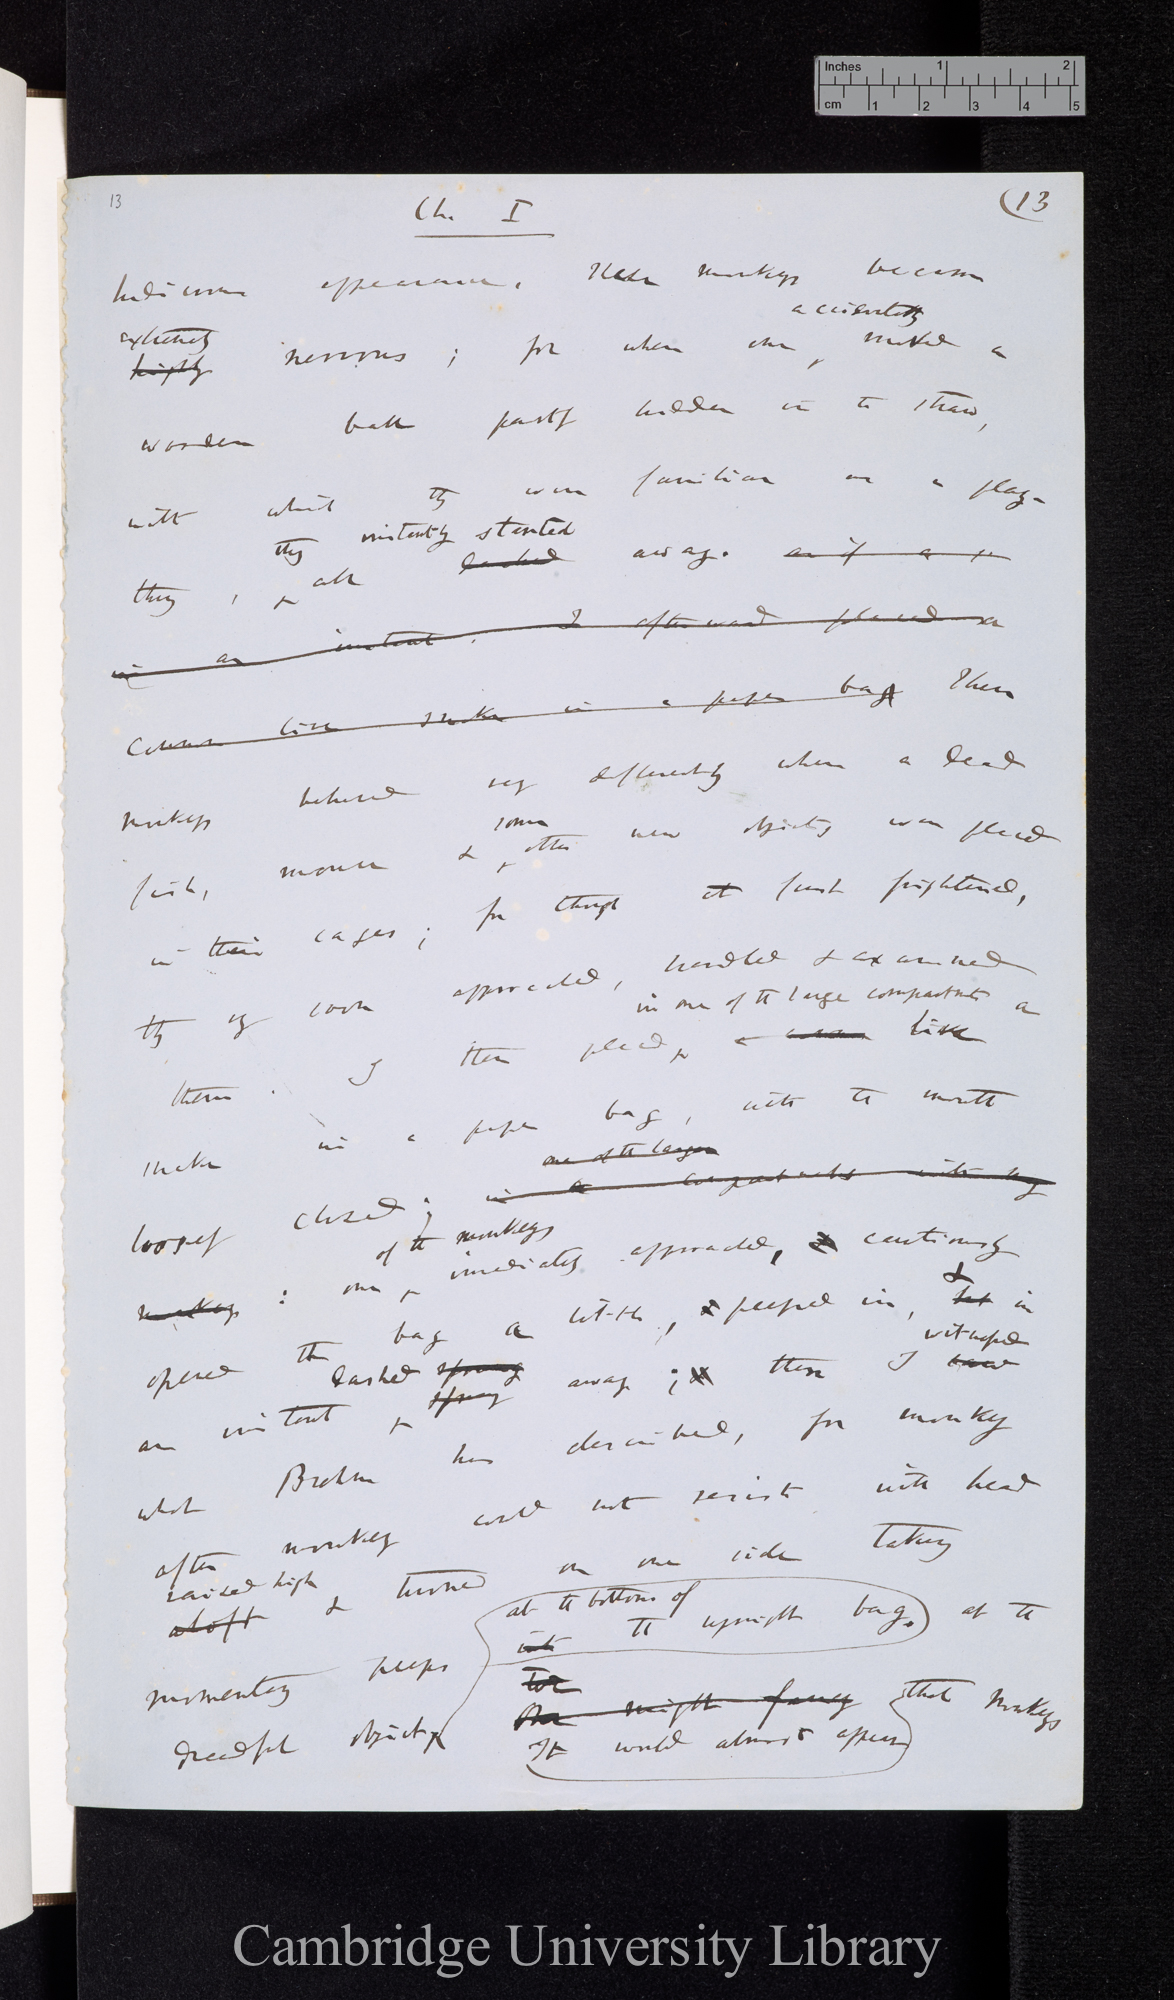 Inches 1 2
cm 1 2 3 4 5
13
Ch. I
(13
ludicrous appearance. These monkeys became
accidentally
extremely
highly nervous ; for when one moved a
wooden ball partly hidden in the straw,
with which they were familiar as a play-
they instantly started
thing, & all dashed away. as if
in an instant. I afterwards placed a
common live snake in a paper bag These
monkeys behaved very differently when a dead
some
fish, mouse & other new objects were placed
in their cages; for though at first frightened,
they soon approached, handled & examined
in one of the large compartments a
them. I then placed a live
snake in a paper bag, with the mouth
one of the larger
loosely closed; in a compartments with
of the monkeys
monkeys : one immediately approached, & cautiously
&
opened the bag a little, & peeped in, in
dashed sprung
witnessed
an instant sprung away; then I saw
what Brehm has described, for monkey
after monkey could not resist with head
raised high
aloft & turned on one side taking
at the bottom of
momentary peeps into the upright bag, at the
dreadful object
One might fancy that monkeys
It would almost appear
Cambridge University Library